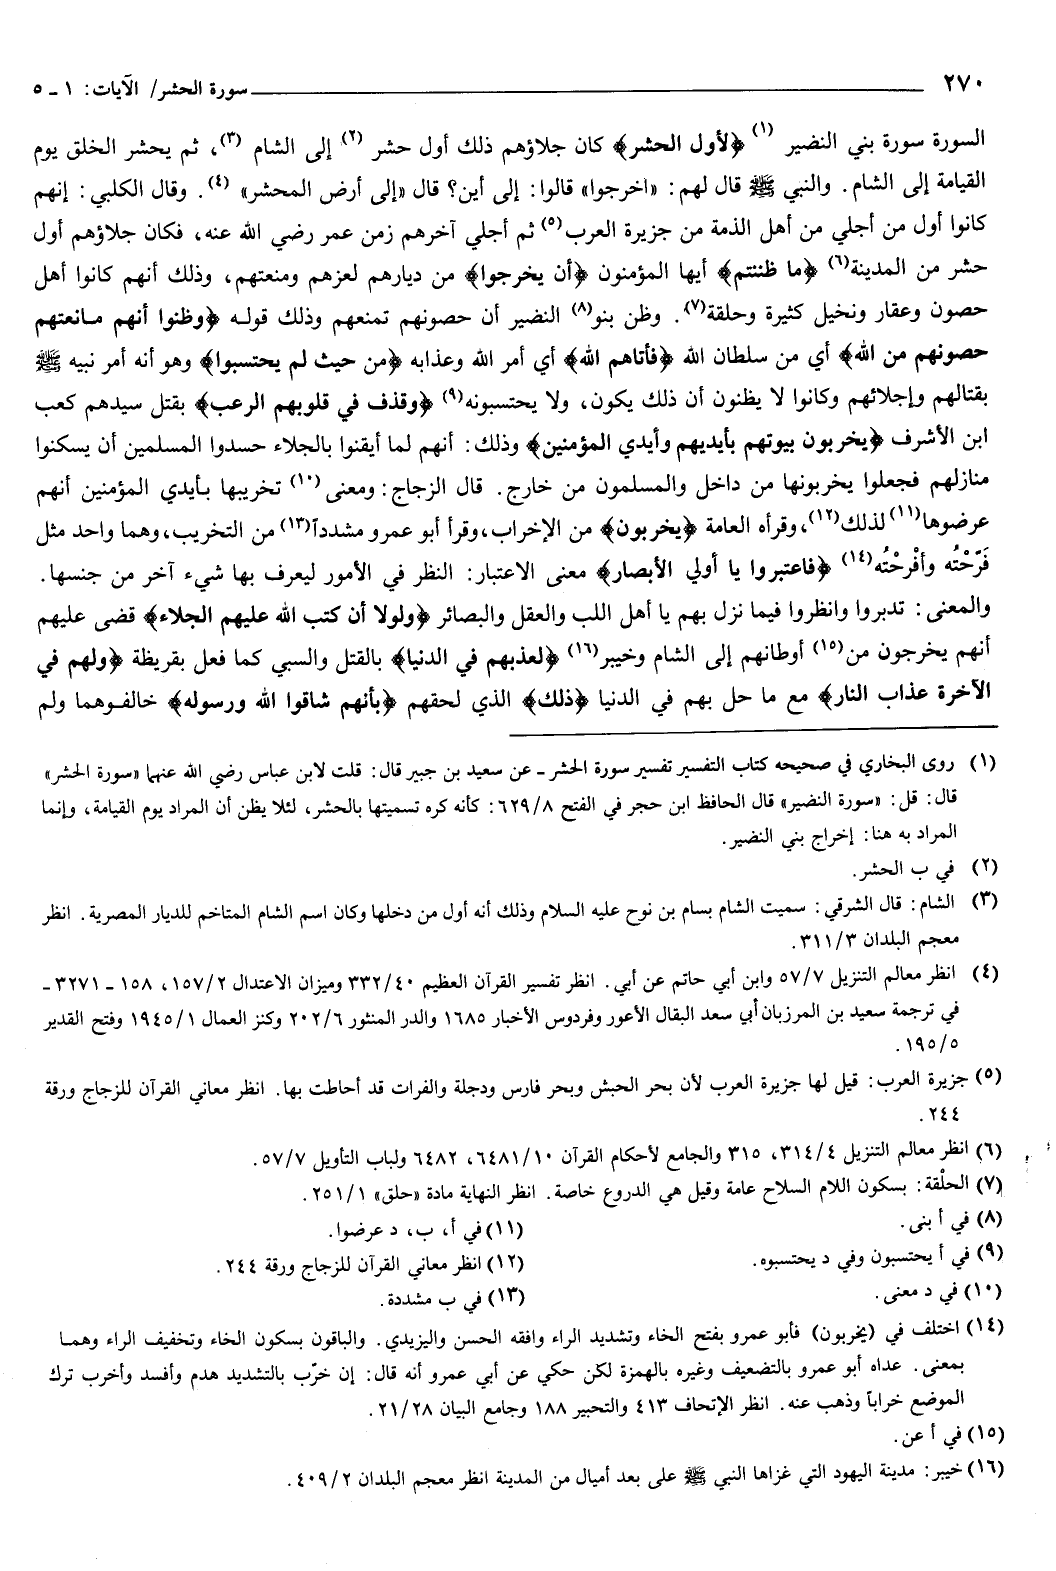 ٢٧٠ سورة الحشر/ الآيات: ١ ـ ٥
السورة سورة بني النضير (١) ﴿لأول الحشر﴾ كان جلاؤهم ذلك أول حشر (٢) إلى الشام (٣)، ثم يحشر الخلق يوم
القيامة إلى الشام. والنبي ﷺ قال لهم: «اخرجوا» قالوا: إلى أين؟ قال «إلى أرض المحشر» (٤). وقال الكلبي: إنهم
كانوا أول من أجلي من أهل الذمة من جزيرة العرب(٥) ثم أجلي آخرهم زمن عمر رضي الله عنه، فكان جلاؤهم أول
حشر من المدينة(٦) ﴿ما ظننتم﴾ أيها المؤمنون ﴿أن يخرجوا﴾ من ديارهم لعزهم ومنعتهم، وذلك أنهم كانوا أهل
حصون وعقار ونخيل كثيرة وحلقة(٧). وظن بنو(٨) النضير أن حصونهم تمنعهم وذلك قوله ﴿وظنوا أنهم مانعتهم
حصونهم من الله﴾ أي من سلطان الله ﴿فأتاهم الله﴾ أي أمر الله وعذابه ﴿من حيث لم يحتسبوا﴾ وهو أنه أمر نبيه ﷺ
بقتالهم وإجلائهم وكانوا لا يظنون أن ذلك يكون، ولا يحتسبونه(٩) ﴿وقذف في قلوبهم الرعب﴾ بقتل سيدهم كعب
ابن الأشرف ﴿يخربون بيوتهم بأيديهم وأيدي المؤمنين﴾ وذلك: أنهم لما أيقنوا بالجلاء حسدوا المسلمين أن يسكنوا
منازلهم فجعلوا يخربونها من داخل والمسلمون من خارج. قال الزجاج: ومعنى (١٠) تخريبها بأيدي المؤمنين أنهم
عرضوها(١١) لذلك(١٢)، وقرأه العامة ﴿يخربون﴾ من الإخراب، وقرأ أبو عمرو مشدداً(١٣) من التخريب، وهما واحد مثل
فَرّحْتُه وأفْرحْتُه(١٤) ﴿فاعتبروا يا أولي الأبصار﴾ معنى الاعتبار: النظر في الأمور ليعرف بها شيء آخر من جنسها.
والمعنى: تدبروا وانظروا فيما نزل بهم يا أهل اللب والعقل والبصائر ﴿ولولا أن كتب الله عليهم الجلاء﴾ قضى عليهم
أنهم يخرجون من(١٥) أوطانهم إلى الشام وخيبر(١٦) ﴿لعذبهم في الدنيا﴾ بالقتل والسبي كما فعل بقريظة ﴿ولهم في
الآخرة عذاب النار﴾ مع ما حل بهم في الدنيا ﴿ذلك﴾ الذي لحقهم ﴿بأنهم شاقوا الله ورسوله﴾ خالفوهما ولم
(١) روى البخاري في صحيحه كتاب التفسير تفسير سورة الحشر ـ عن سعيد بن جبير قال: قلت لابن عباس رضي الله عنهما «سورة الحشر»
قال: قل: «سورة النضير» قال الحافظ ابن حجر في الفتح ٦٢٩/٨: كأنه كره تسميتها بالحشر، لئلا يظن أن المراد يوم القيامة، وإنما
المراد به هنا: إخراج بني النضير.
(٢) في ب الحشر.
(٣) الشام: قال الشرقي: سميت الشام بسام بن نوح عليه السلام وذلك أنه أول من دخلها وكان اسم الشام المتاخم للديار المصرية. انظر
معجم البلدان ٣١١/٣.
(٤) انظر معالم التنزيل ٥٧/٧ وابن أبي حاتم عن أبي. انظر تفسير القرآن العظيم ٣٣٢/٤٠ وميزان الاعتدال ١٥٧/٢، ١٥٨ ـ ٣٢٧١ ـ
في ترجمة سعيد بن المرزبان أبي سعد البقال الأعور وفردوس الأخبار ١٦٨٥ والدر المنثور ٢٠٢/٦ وكنز العمال ١٩٤٥/١ وفتح القدير
١٩٥/٥.
(٥) جزيرة العرب: قيل لها جزيرة العرب لأن بحر الحبش وبحر فارس ودجلة والفرات قد أحاطت بها. انظر معاني القرآن للزجاج ورقة
٢٤٤.
(٦) انظر معالم التنزيل ٣١٤/٤، ٣١٥ والجامع لأحكام القرآن ٦٤٨١/١٠، ٦٤٨٢ ولباب التأويل ٥٧/٧.
(٧) الحلْقة: بسكون اللام السلاح عامة وقيل هي الدروع خاصة. انظر النهاية مادة «حلق» ٢٥١/١.
(٨) في أ بنى. (١١) في أ، ب، د عرضوا.
(٩) في أ يحتسبون وفي د يحتسبوه. (١٢) انظر معاني القرآن للزجاج ورقة ٢٤٤.
(١٠) في د معنى. (١٣) في ب مشددة.
(١٤) اختلف في (يخربون) فأبو عمرو بفتح الخاء وتشديد الراء وافقه الحسن واليزيدي. والباقون بسكون الخاء وتخفيف الراء وهما
بمعنى. عداه أبو عمرو بالتضعيف وغيره بالهمزة لكن حكي عن أبي عمرو أنه قال: إن خرّب بالتشديد هدم وأفسد وأخرب ترك
الموضع خراباً وذهب عنه. انظر الإتحاف ٤١٣ والتحبير ١٨٨ وجامع البيان ٢١/٢٨.
(١٥) في أ عن.
(١٦) خيبر: مدينة اليهود التي غزاها النبي ﷺ على بعد أميال من المدينة انظر معجم البلدان ٤٠٩/٢.